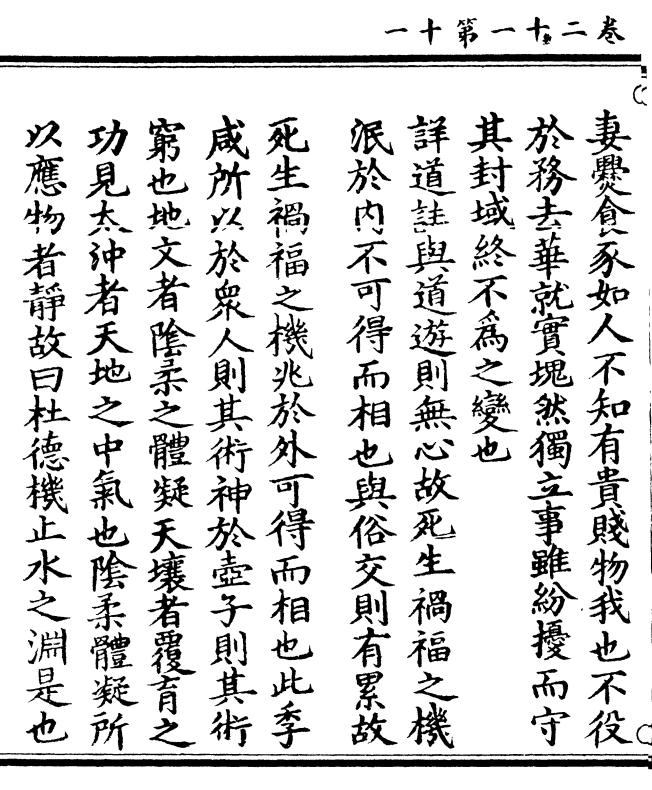 卷二十一第十一
妻爨食豕如人不知有貴賤物我也不役
於務去華就實塊然獨立事雖紛擾而守
其封域終不為之變也
詳道註與道遊則無心故死生禍福之機
泯於内不可得而相也與俗交則有累故
死生禍福之機兆於外可得而相也此季
咸所以於衆人則其術神於壺子則其術
窮也地文者陰柔之體凝天壤者覆育之
功見太沖者天地之中氣也陰柔體凝所
以應物者靜故曰杜德機止水之淵是也